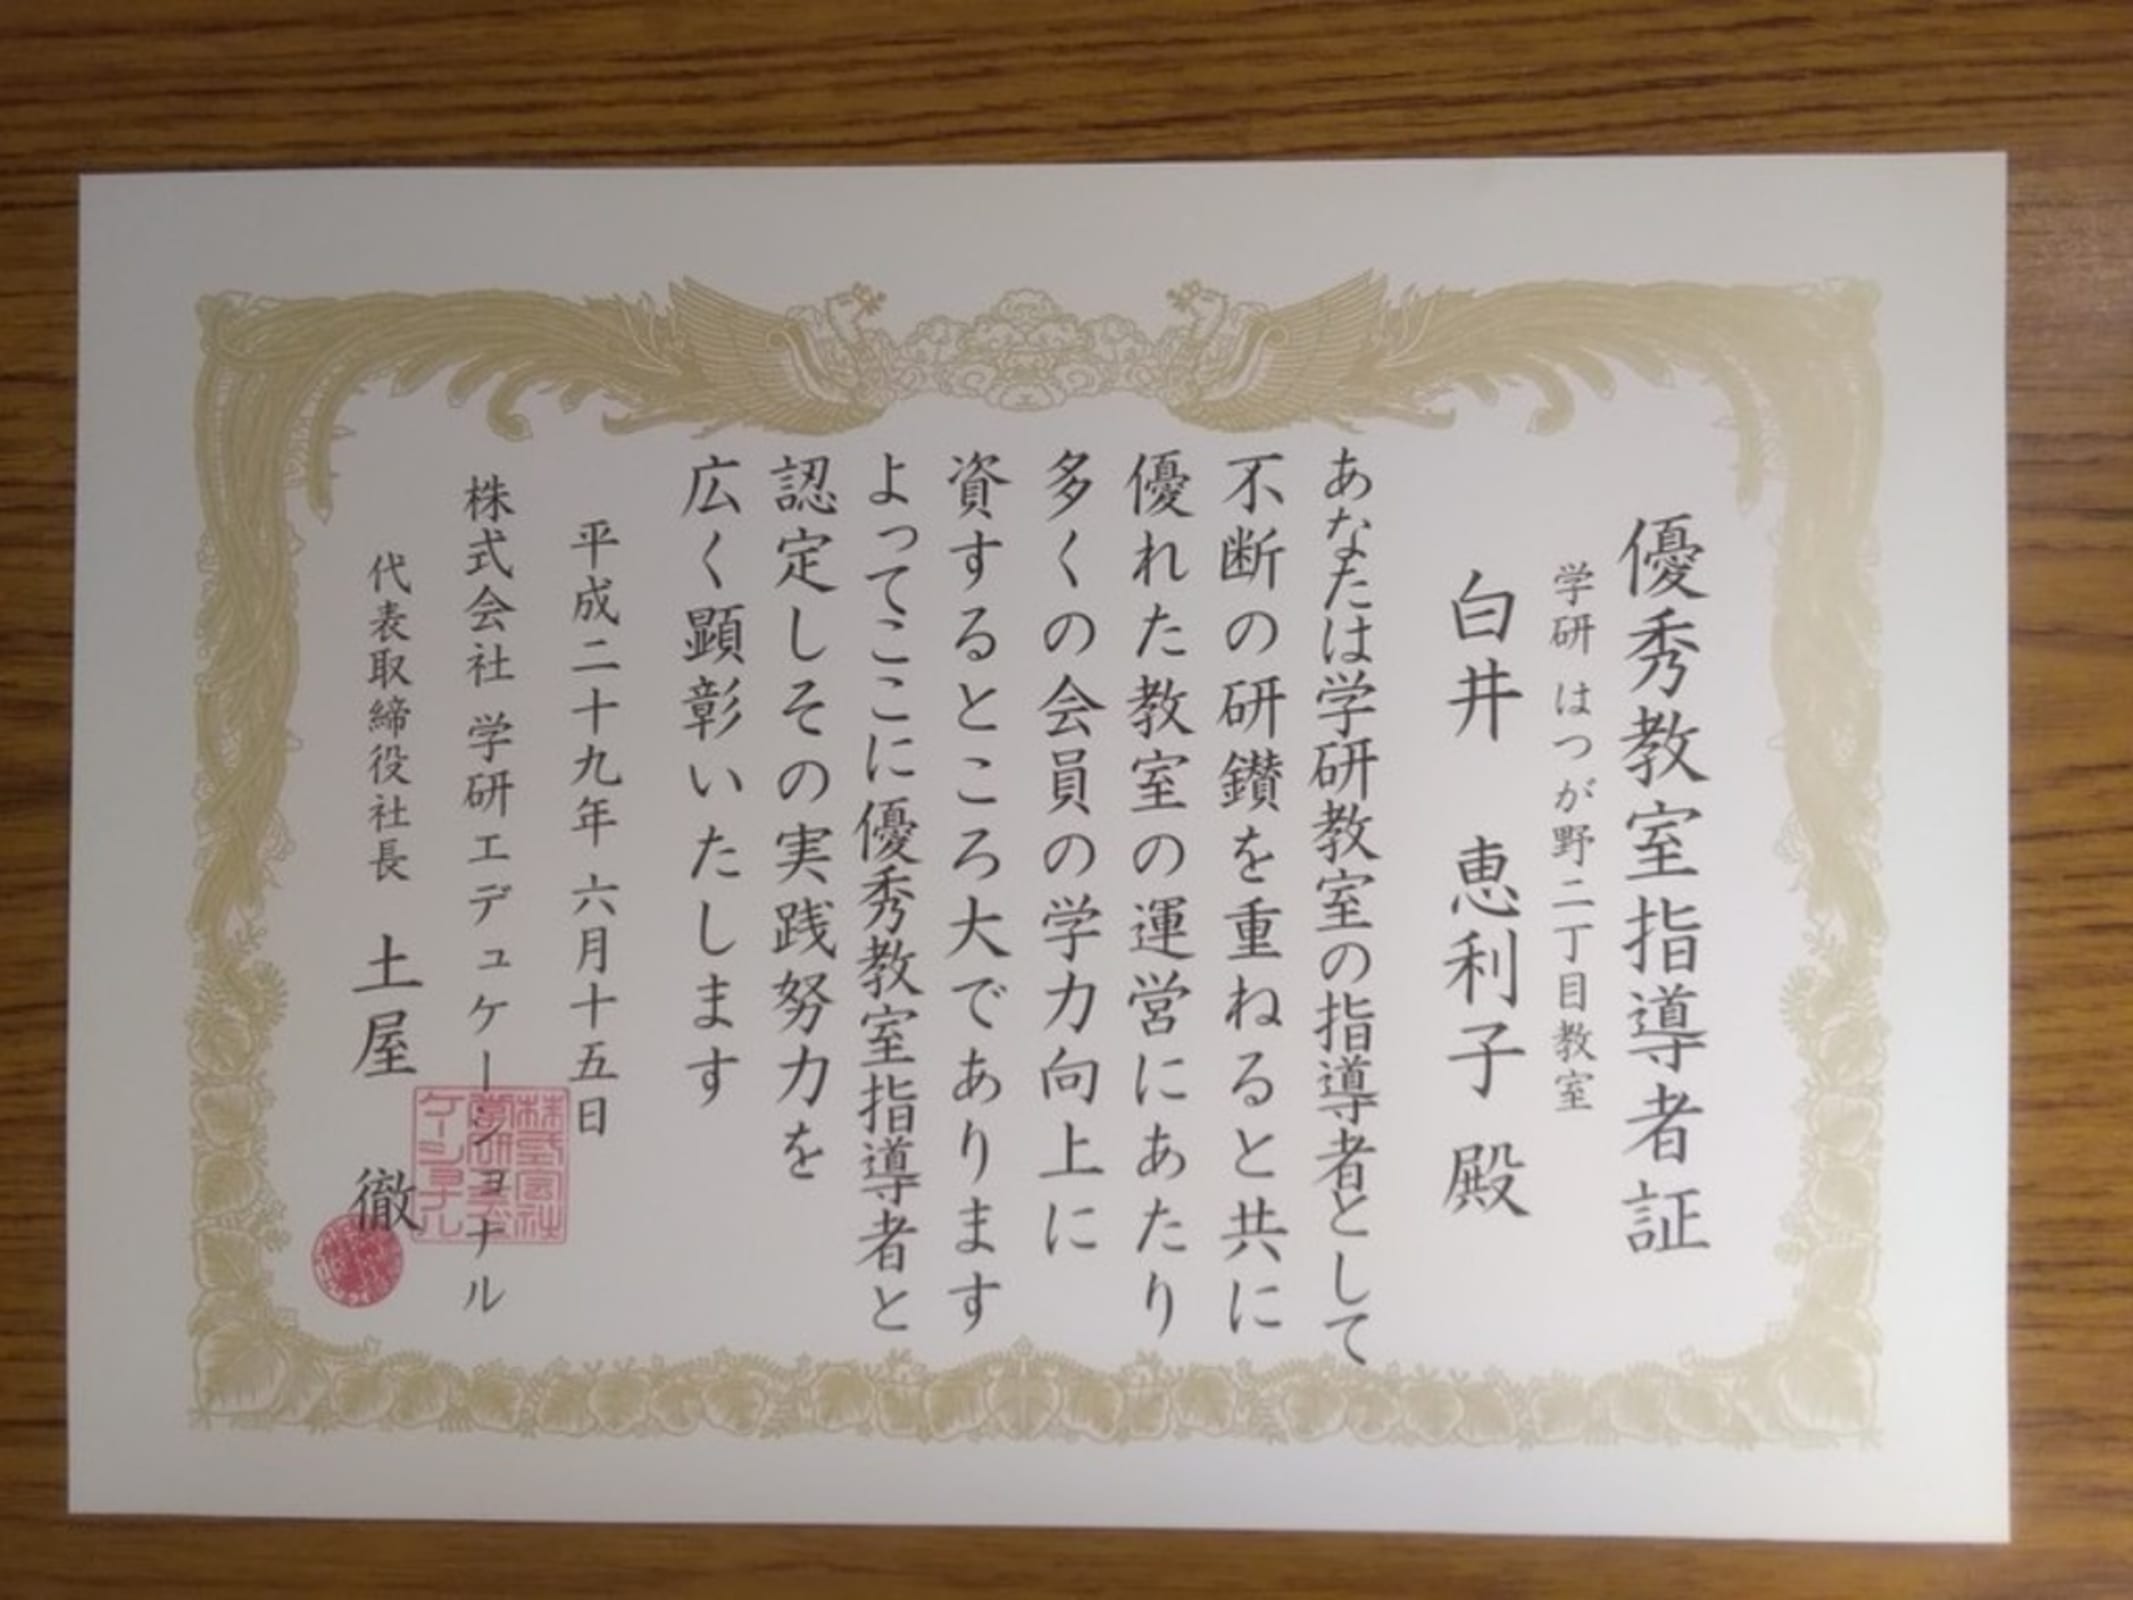 優秀教室指導者証
学研 はつが野二丁目教室
白井 恵利子 殿
あなたは学研教室の指導者として
不断の研鑽を重ねると共に
優れた教室の運営にあたり
多くの会員の学力向上に
資するところ大であります
よってここに優秀教室指導者と
認定しその実践努力を
広く顕彰いたします
平成二十九年 六月十五日
株式会社 学研エデュケーショナル
代表取締役社長 土屋 徹
株式会社
学研エデュ
ケーショナル